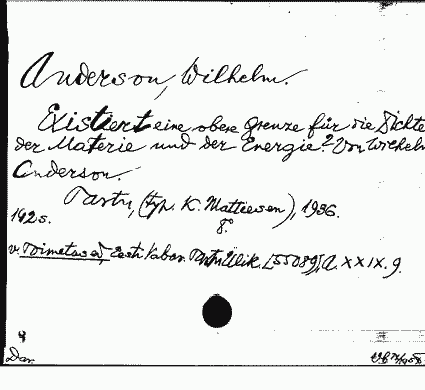 Anderson, Wilhelm.
Existiert eine obere Grenze für die Dichte
der Materie und der Energie? Von Wilhelm
Anderson.
Tartu, (typ. K. Mattiesen), 1936.
142 s. 8°.
v. Toimetused, Eesti Vabar. Tartu Ülik. [55089], A. XXIX. 9.
Dar.